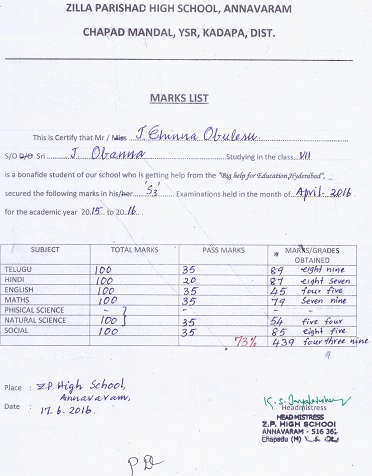 ZILLA PARISHAD HIGH SCHOOL, ANNAVARAM
CHAPAD MANDAL, YSR, KADAPA, DIST.
MARKS LIST
This is Certify that Mr / Miss J. Chinna Obulesu
S/O D/O Sri J. Obanna Studying in the class VII
is a bonafide student of our school who is getting help from the "Big help for Education, Hyderabad",
secured the following marks in his/her 'S3' Examinations held in the month of April-2016
for the academic year 2015 to 2016.
SUBJECT TOTAL MARKS PASS MARKS MARKS/GRADES OBTAINED
TELUGU 100 35 89 eight nine
HINDI 100 20 87 eight seven
ENGLISH 100 35 45 four five
MATHS 100 35 79 seven nine
PHISICAL SCIENCE - - -
NATURAL SCIENCE 100 35 54 five four
SOCIAL 100 35 85 eight five
73% 439 four three nine
Place : Z.P. High School,
Annavaram,
Date : 17.6.2016.
Headmistress
HEAD MISTRESS
Z.P. HIGH SCHOOL
ANNAVARAM - 516 36
Chapadu (M)